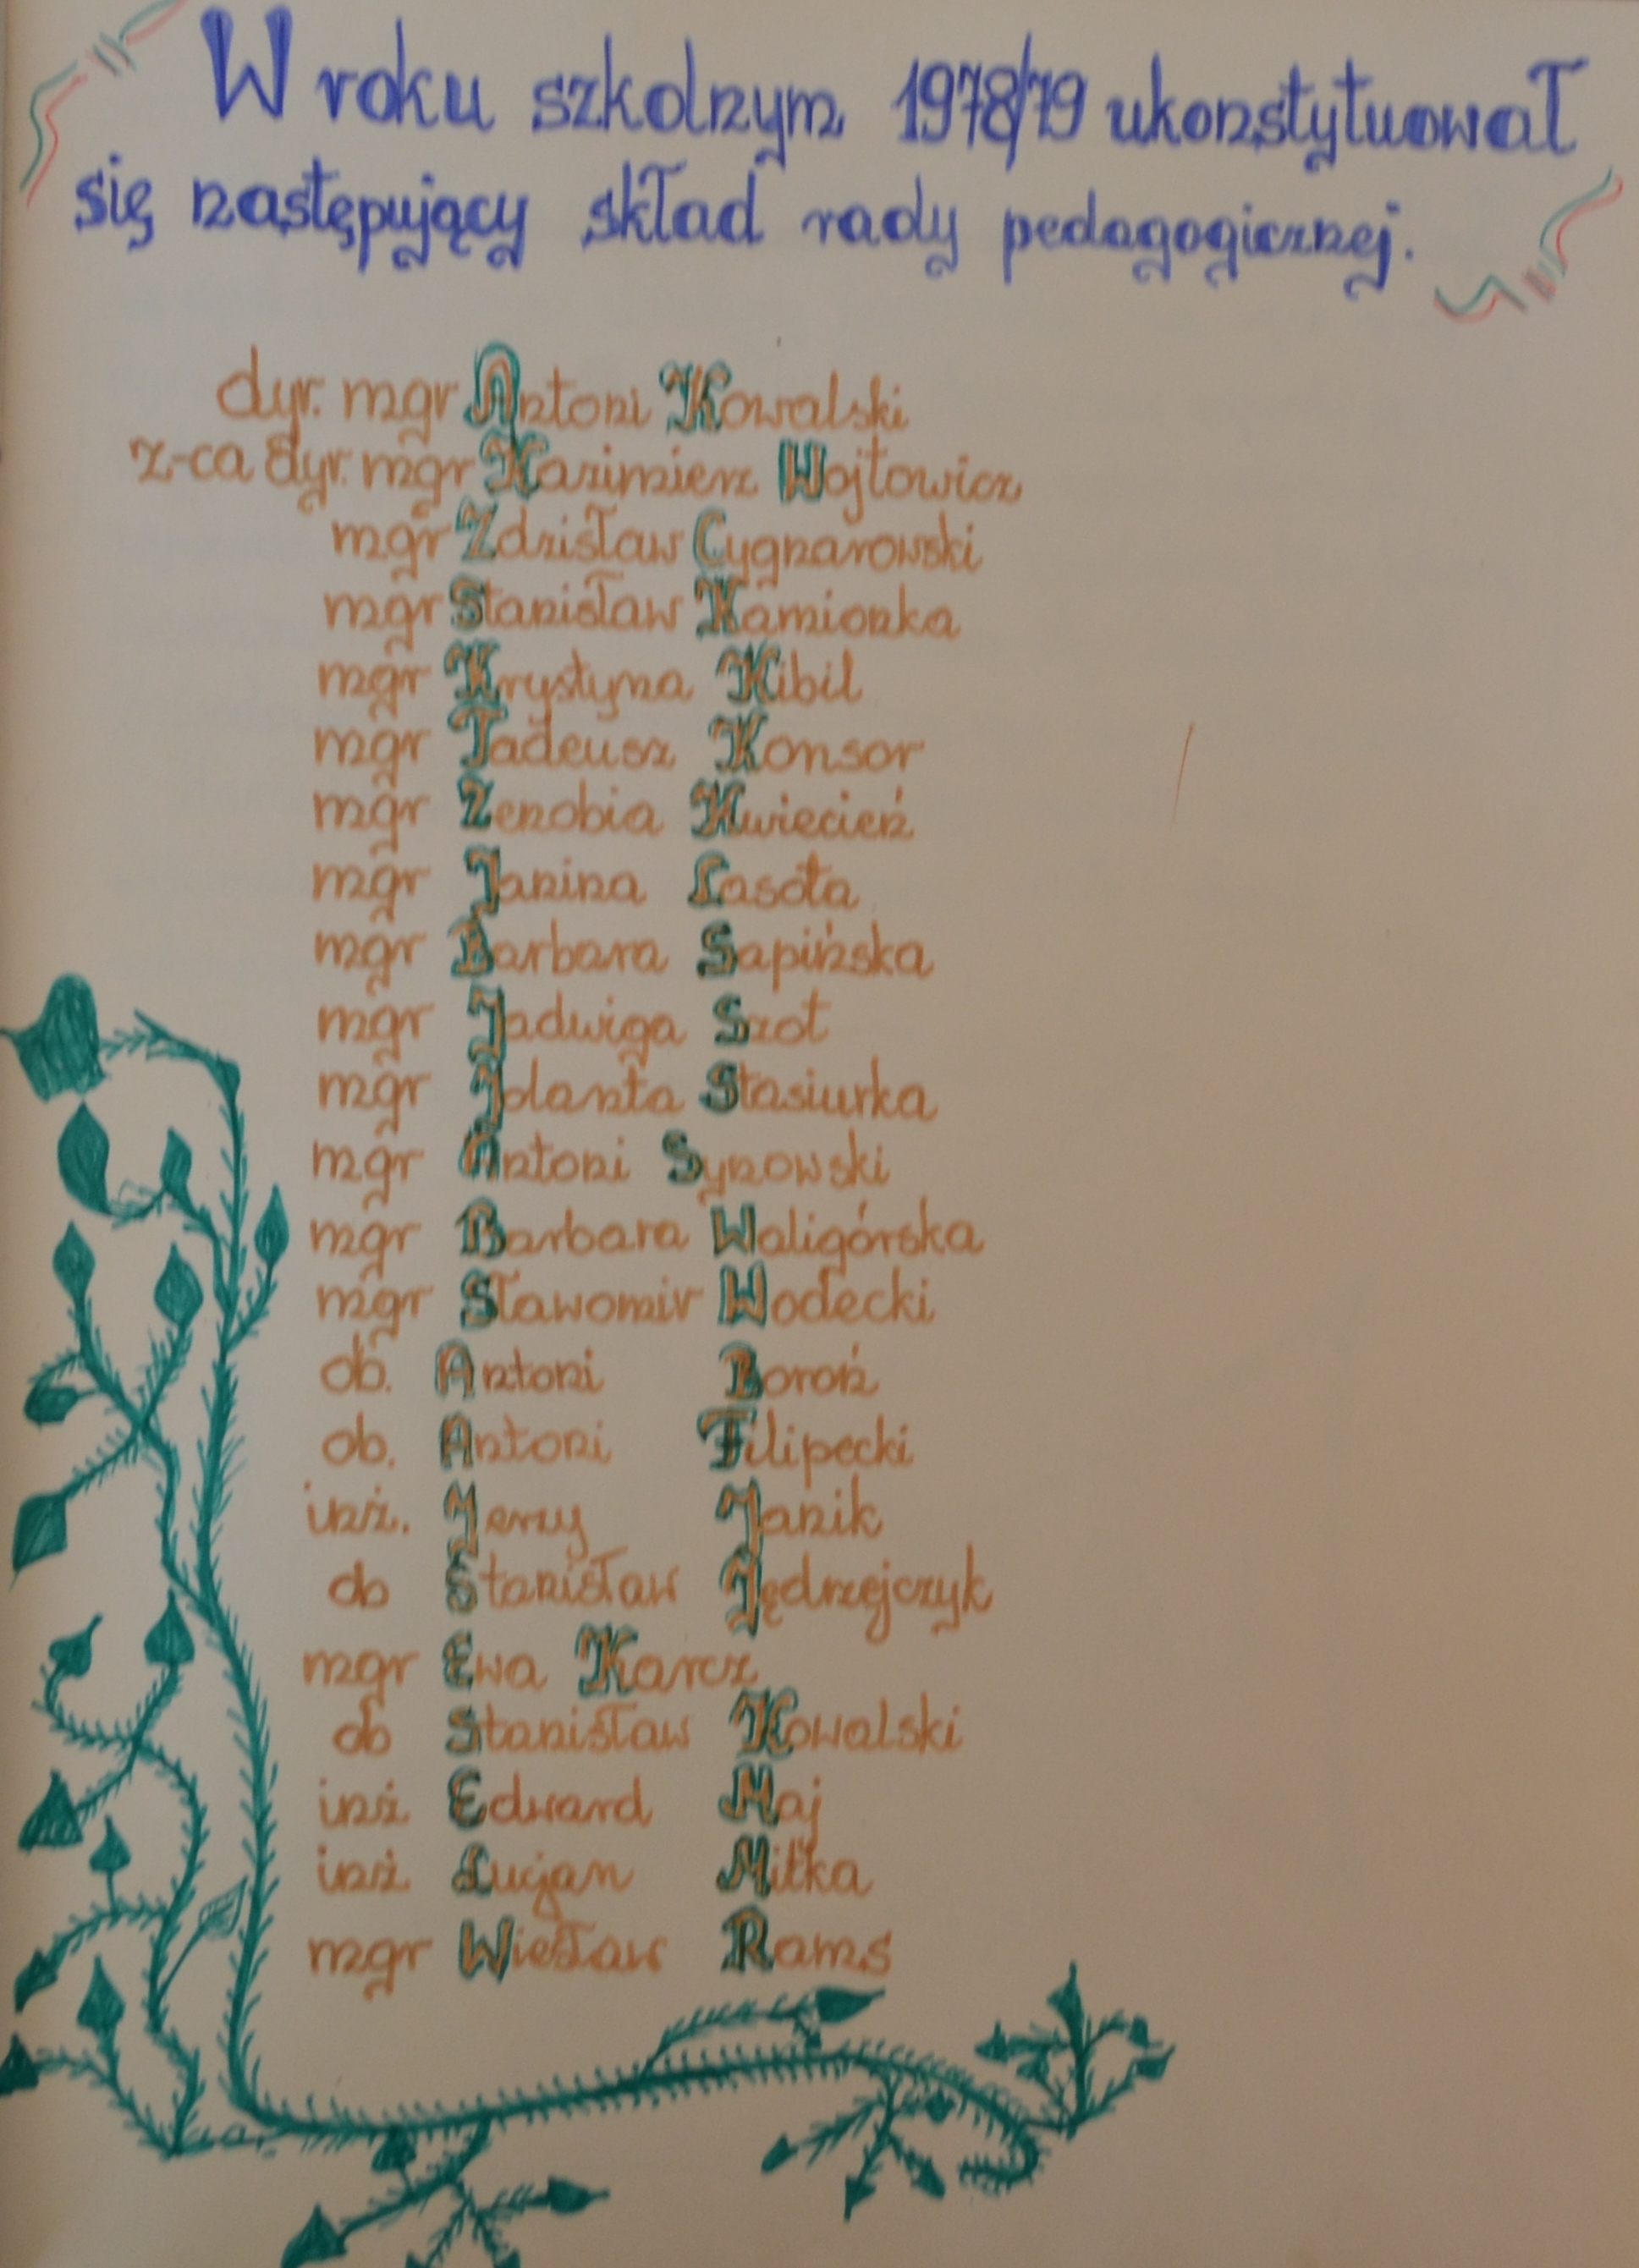 W roku szkolnym 1978/79 ukonstytuował
się następujący skład rady pedagogicznej.
dyr. mgr Antoni Kowalski
z-ca dyr. mgr Kazimierz Wojtowicz
mgr Zdzisław Cygnarowski
mgr Stanisław Kamionka
mgr Krystyna Kibil
mgr Tadeusz Konsor
mgr Zenobia Kwiecień
mgr Janina Lasota
mgr Barbara Sapińska
mgr Jadwiga Szot
mgr Jolanta Stasiurka
mgr Antoni Synowski
mgr Barbara Waligórska
mgr Sławomir Wodecki
ob. Antoni Boroń
ob. Antoni Filipecki
inż. Jerzy Janik
ob Stanisław Jędrzejczyk
mgr Ewa Karcz
ob Stanisław Kowalski
inż Edward Maj
inż Lucjan Miłka
mgr Wiesław Rams